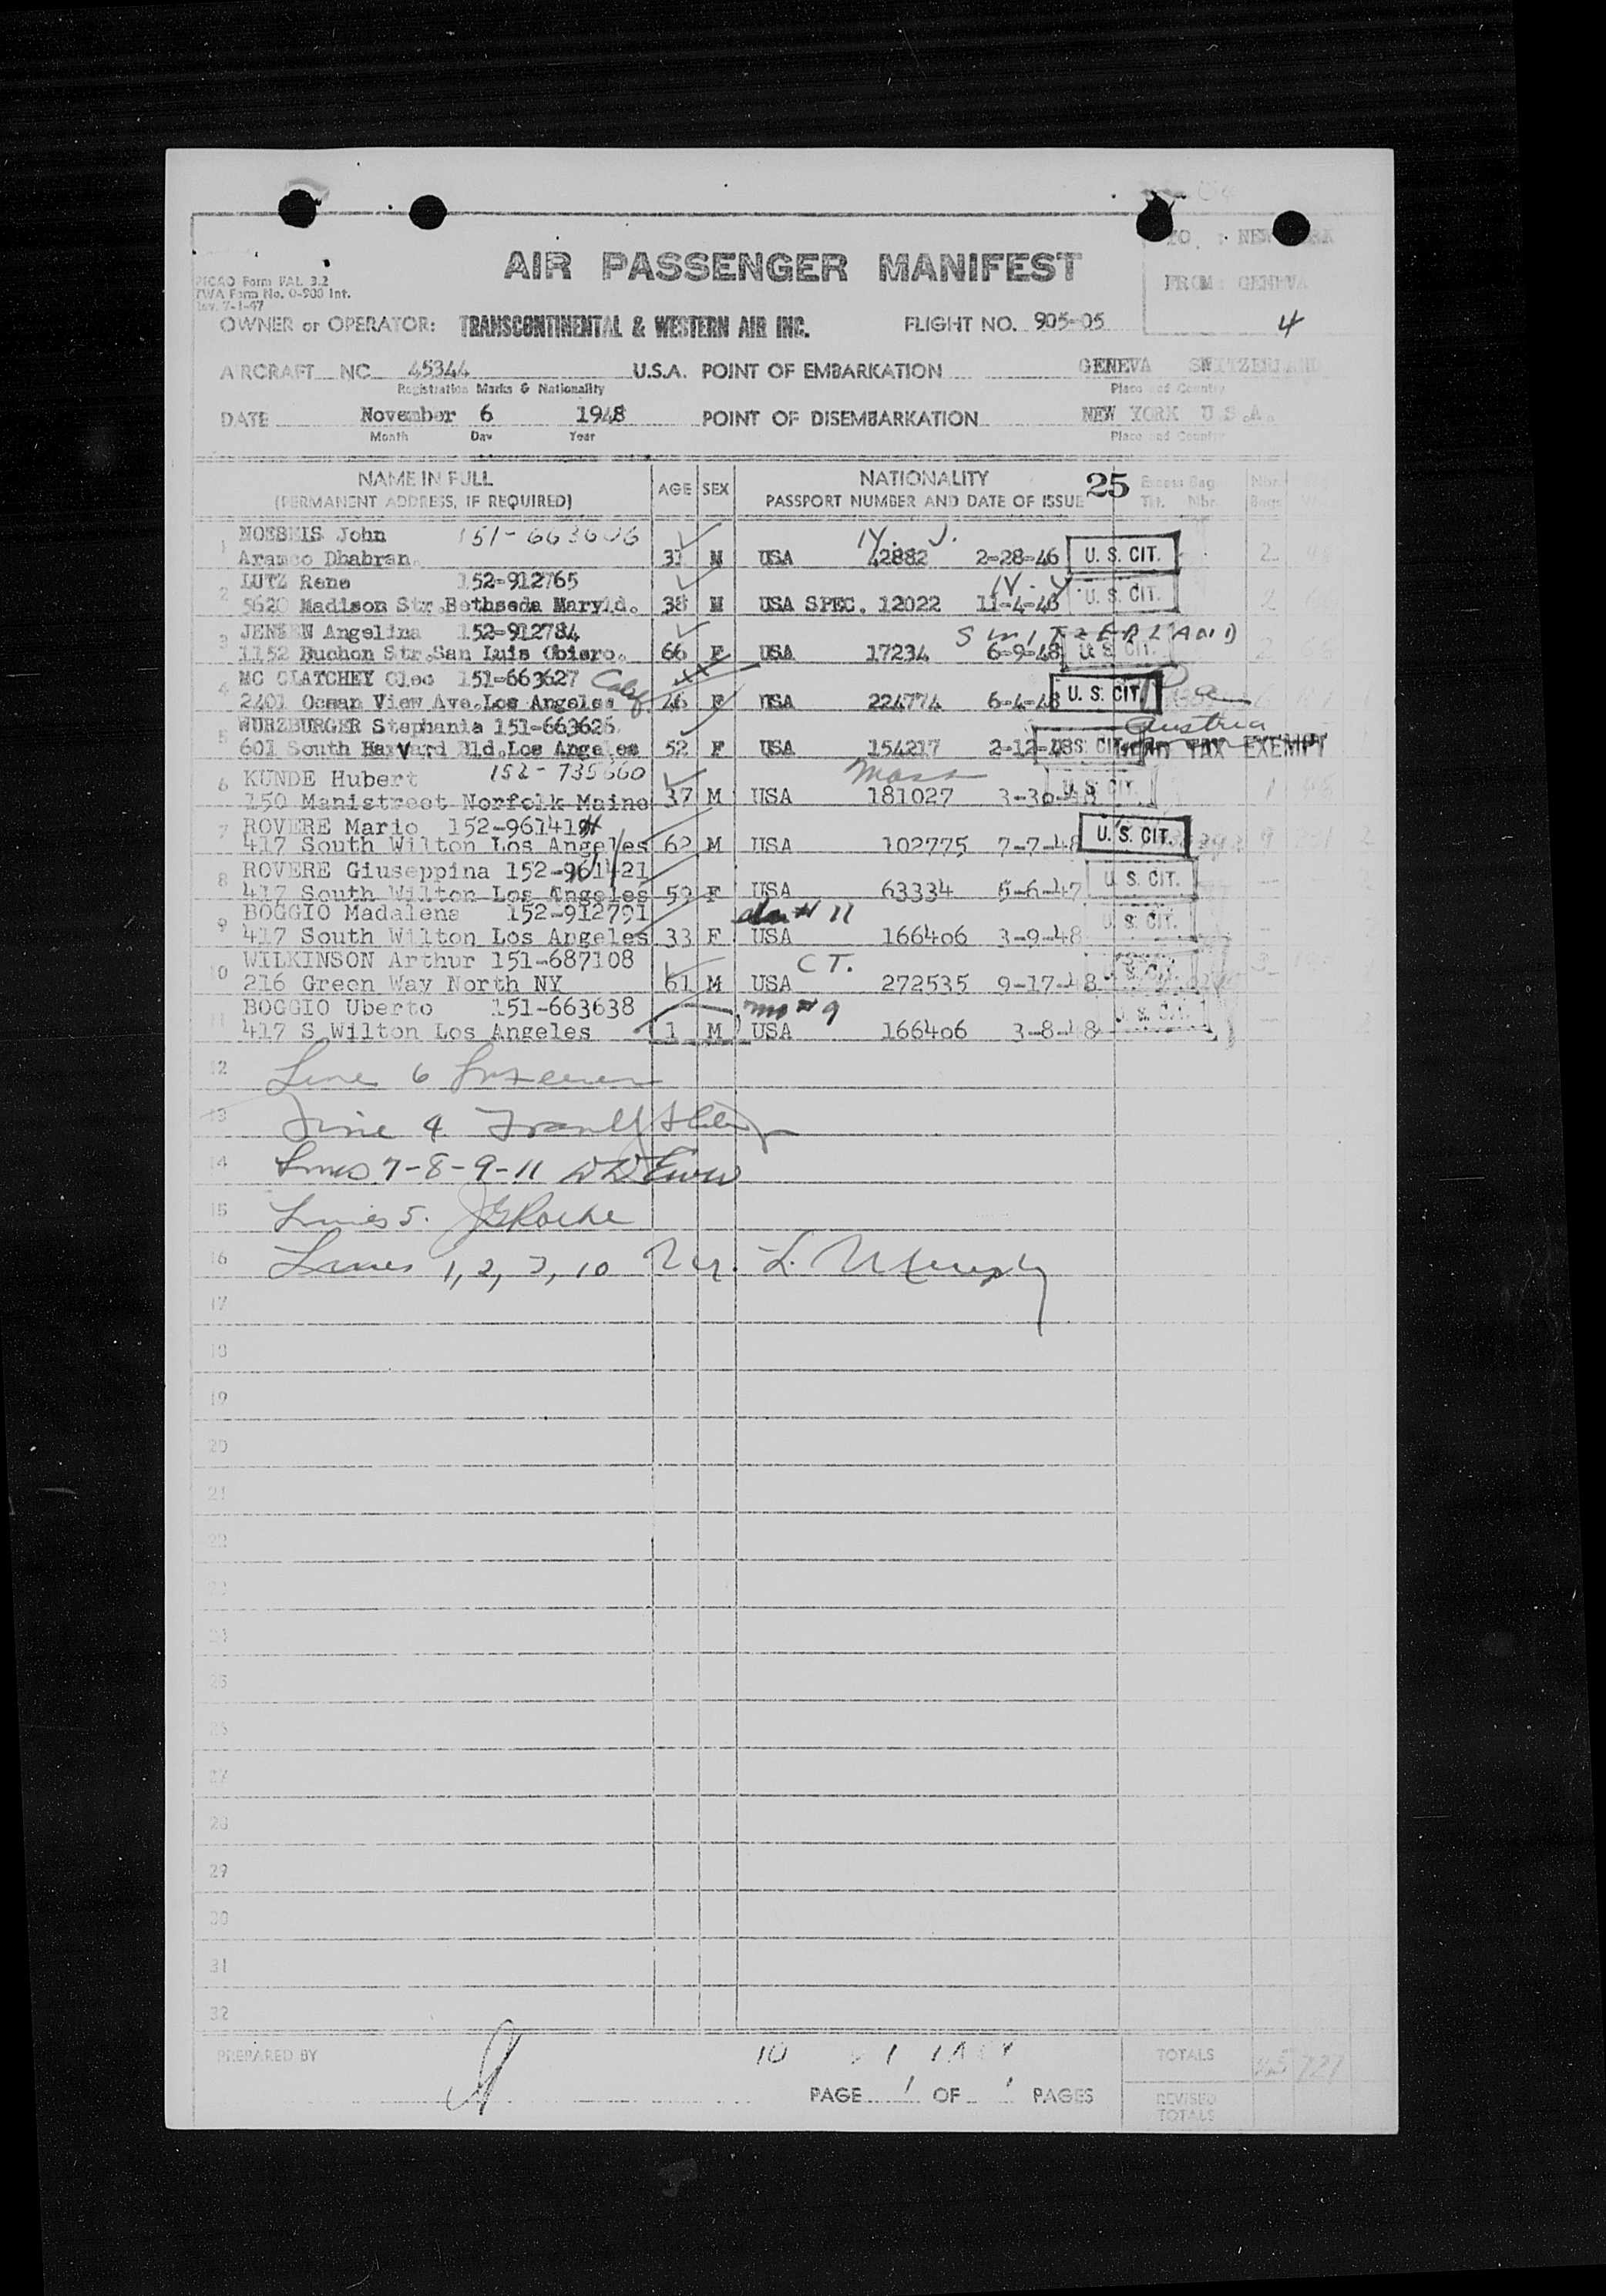 TO : NEW
FROM: GENEVA
AIR PASSENGER MANIFEST
PICAO Form PAL 3.2
TWA Form No. 0-900 Int.
Rev. 7-1-47
OWNER or OPERATOR: TRANSCONTINENTAL & WESTERN AIR INC. FLIGHT NO. 905-05 4
AIRCRAFT NC 45344 U.S.A. POINT OF EMBARKATION GENEVA SWITZERLAND
Registration Marks & Nationality Place and Country
DATE November 6 1948 POINT OF DISEMBARKATION NEW YORK U.S.A.
Month Day Year Place and Country
NAME IN FULL AGE SEX NATIONALITY 25 Excess Bag Nbr.
(PERMANENT ADDRESS, IF REQUIRED) PASSPORT NUMBER AND DATE OF ISSUE Tkt. Nbr. Bags
1 John 151-663606 N. J.
Aramco Dhahran. M USA 42882 2-28-46 U. S. CIT. 2
2 LUTZ Rene 152-912765 N. Y.
5620 Madison Str.Bethseda Maryld. 38 M USA SPEC. 12022 11-4-46 U. S. CIT. 2
3 JENSEN Angelina 152-912784 SWITZERLAND
1152 Buchon Str.San Luis Obispo. 66 F USA 17234 6-9-48 U. S. CIT. 2
4 MC CLATCHEY Cleo 151-663627 Calif Pa
2401 Ocean View Ave.Los Angeles 46 F USA 224774 6-4-48 U. S. CIT.
5 WURZBURGER Stephanie 151-663626 Austria
601 South Harvard Bld.Los Angeles 52 F USA 154217 2-12-48 U. S. CIT. HEAD TAX EXEMPT
6 KUNDE Hubert 152-735660 Mass
150 Manistreet Norfolk Maine 37 M USA 181027 3-30-48 U. S. CIT. 1
7 ROVERE Mario 152-961419
417 South Wilton Los Angeles 62 M USA 102775 7-7-48 U. S. CIT. 9
8 ROVERE Giuseppina 152-961421
417 South Wilton Los Angeles 59 F USA 63334 6-6-47 U. S. CIT.
9 BOGGIO Madalena 152-912791 # 11
417 South Wilton Los Angeles 33 F USA 166406 3-9-48 U. S. CIT.
10 WILKINSON Arthur 151-687108 CT.
216 Green Way North NY 61 M USA 272535 9-17-48 U. S. CIT. 3
11 BOGGIO Uberto 151-663638 # 9
417 S Wilton Los Angeles 1 M USA 166406 3-8-48 U. S. CIT.
12 Line 6
13 Line 4
14 Lines 7-8-9-11
15 Lines 5. JG Roche
16 Lines 1, 2, 3, 10 L. Murphy
17
18
19
20
21
22
23
24
25
26
27
28
29
30
31
32
PREPARED BY 10 TOTALS 727
PAGE 1 OF 1 PAGES REVISED
TOTALS